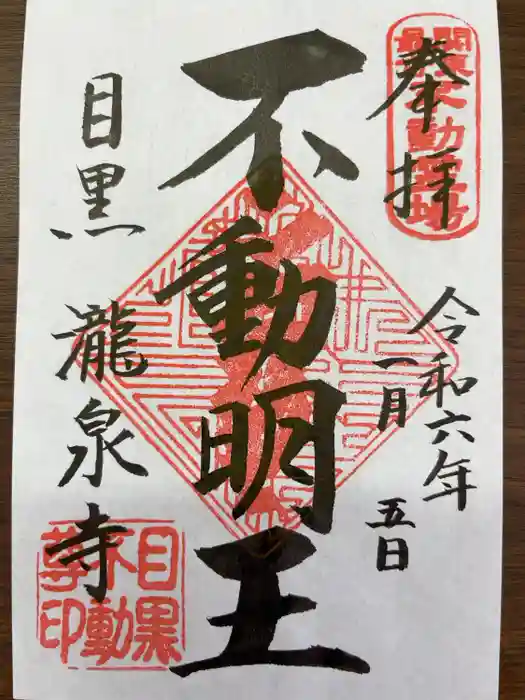 奉拝
関東最古不動霊場
令和六年
一月
五日
不動明王
目黒
瀧泉寺
目黒不動尊印